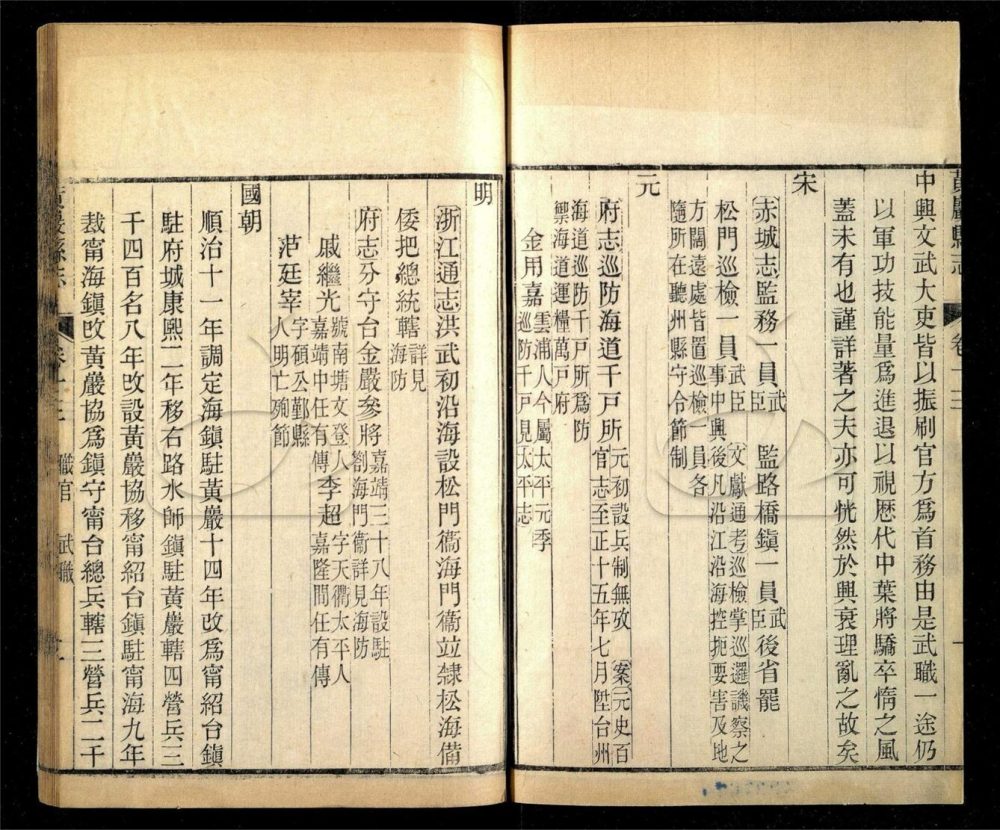 中興文武大吏皆以振刷官方爲首務由是武職一途仍
以軍功技能量爲進退以視歷代中葉將驕卒惰之風
蓋未有也謹詳著之夫亦可恍然於興衰理亂之故矣
宋
赤城志監務一員武臣 監路橋鎮一員武臣後省罷
松門巡檢一員武臣 文獻通考巡檢掌巡邏譏察之事中興後凡沿江沿海控扼要害及地
方闊遠處皆置巡檢一員各隨所在聽州縣守令節制
元
府志巡防海道千戸所元初設兵制無攷 案元史百官志至正十五年七月陞台州
海道巡防千戸所爲防禦海道運糧萬戸府
金用嘉雲浦人今屬太平元季巡防千戸見太平志
黃巖縣志
卷十三
黃巖縣志
卷十三
職官 武職
明
浙江通志洪武初沿海設松門衞海門衞竝隸松海備
倭把總統轄詳見海防
府志分守台金嚴參將嘉靖三十八年設駐劄海門衞詳見海防
戚繼光號南塘文登人嘉靖中任有傳李超字天衢太平人嘉隆間任有傳
范廷宰字碩公鄞縣人明亡殉節
國朝
順治十一年調定海鎮駐黃巖十四年改爲甯紹台鎮
駐府城康熙二年移右路水師鎮駐黃巖轄四營兵三
千四百名八年改設黃巖協移甯紹台鎮駐甯海九年
裁甯海鎮改黃巖協爲鎮守甯台總兵轄三營兵二千